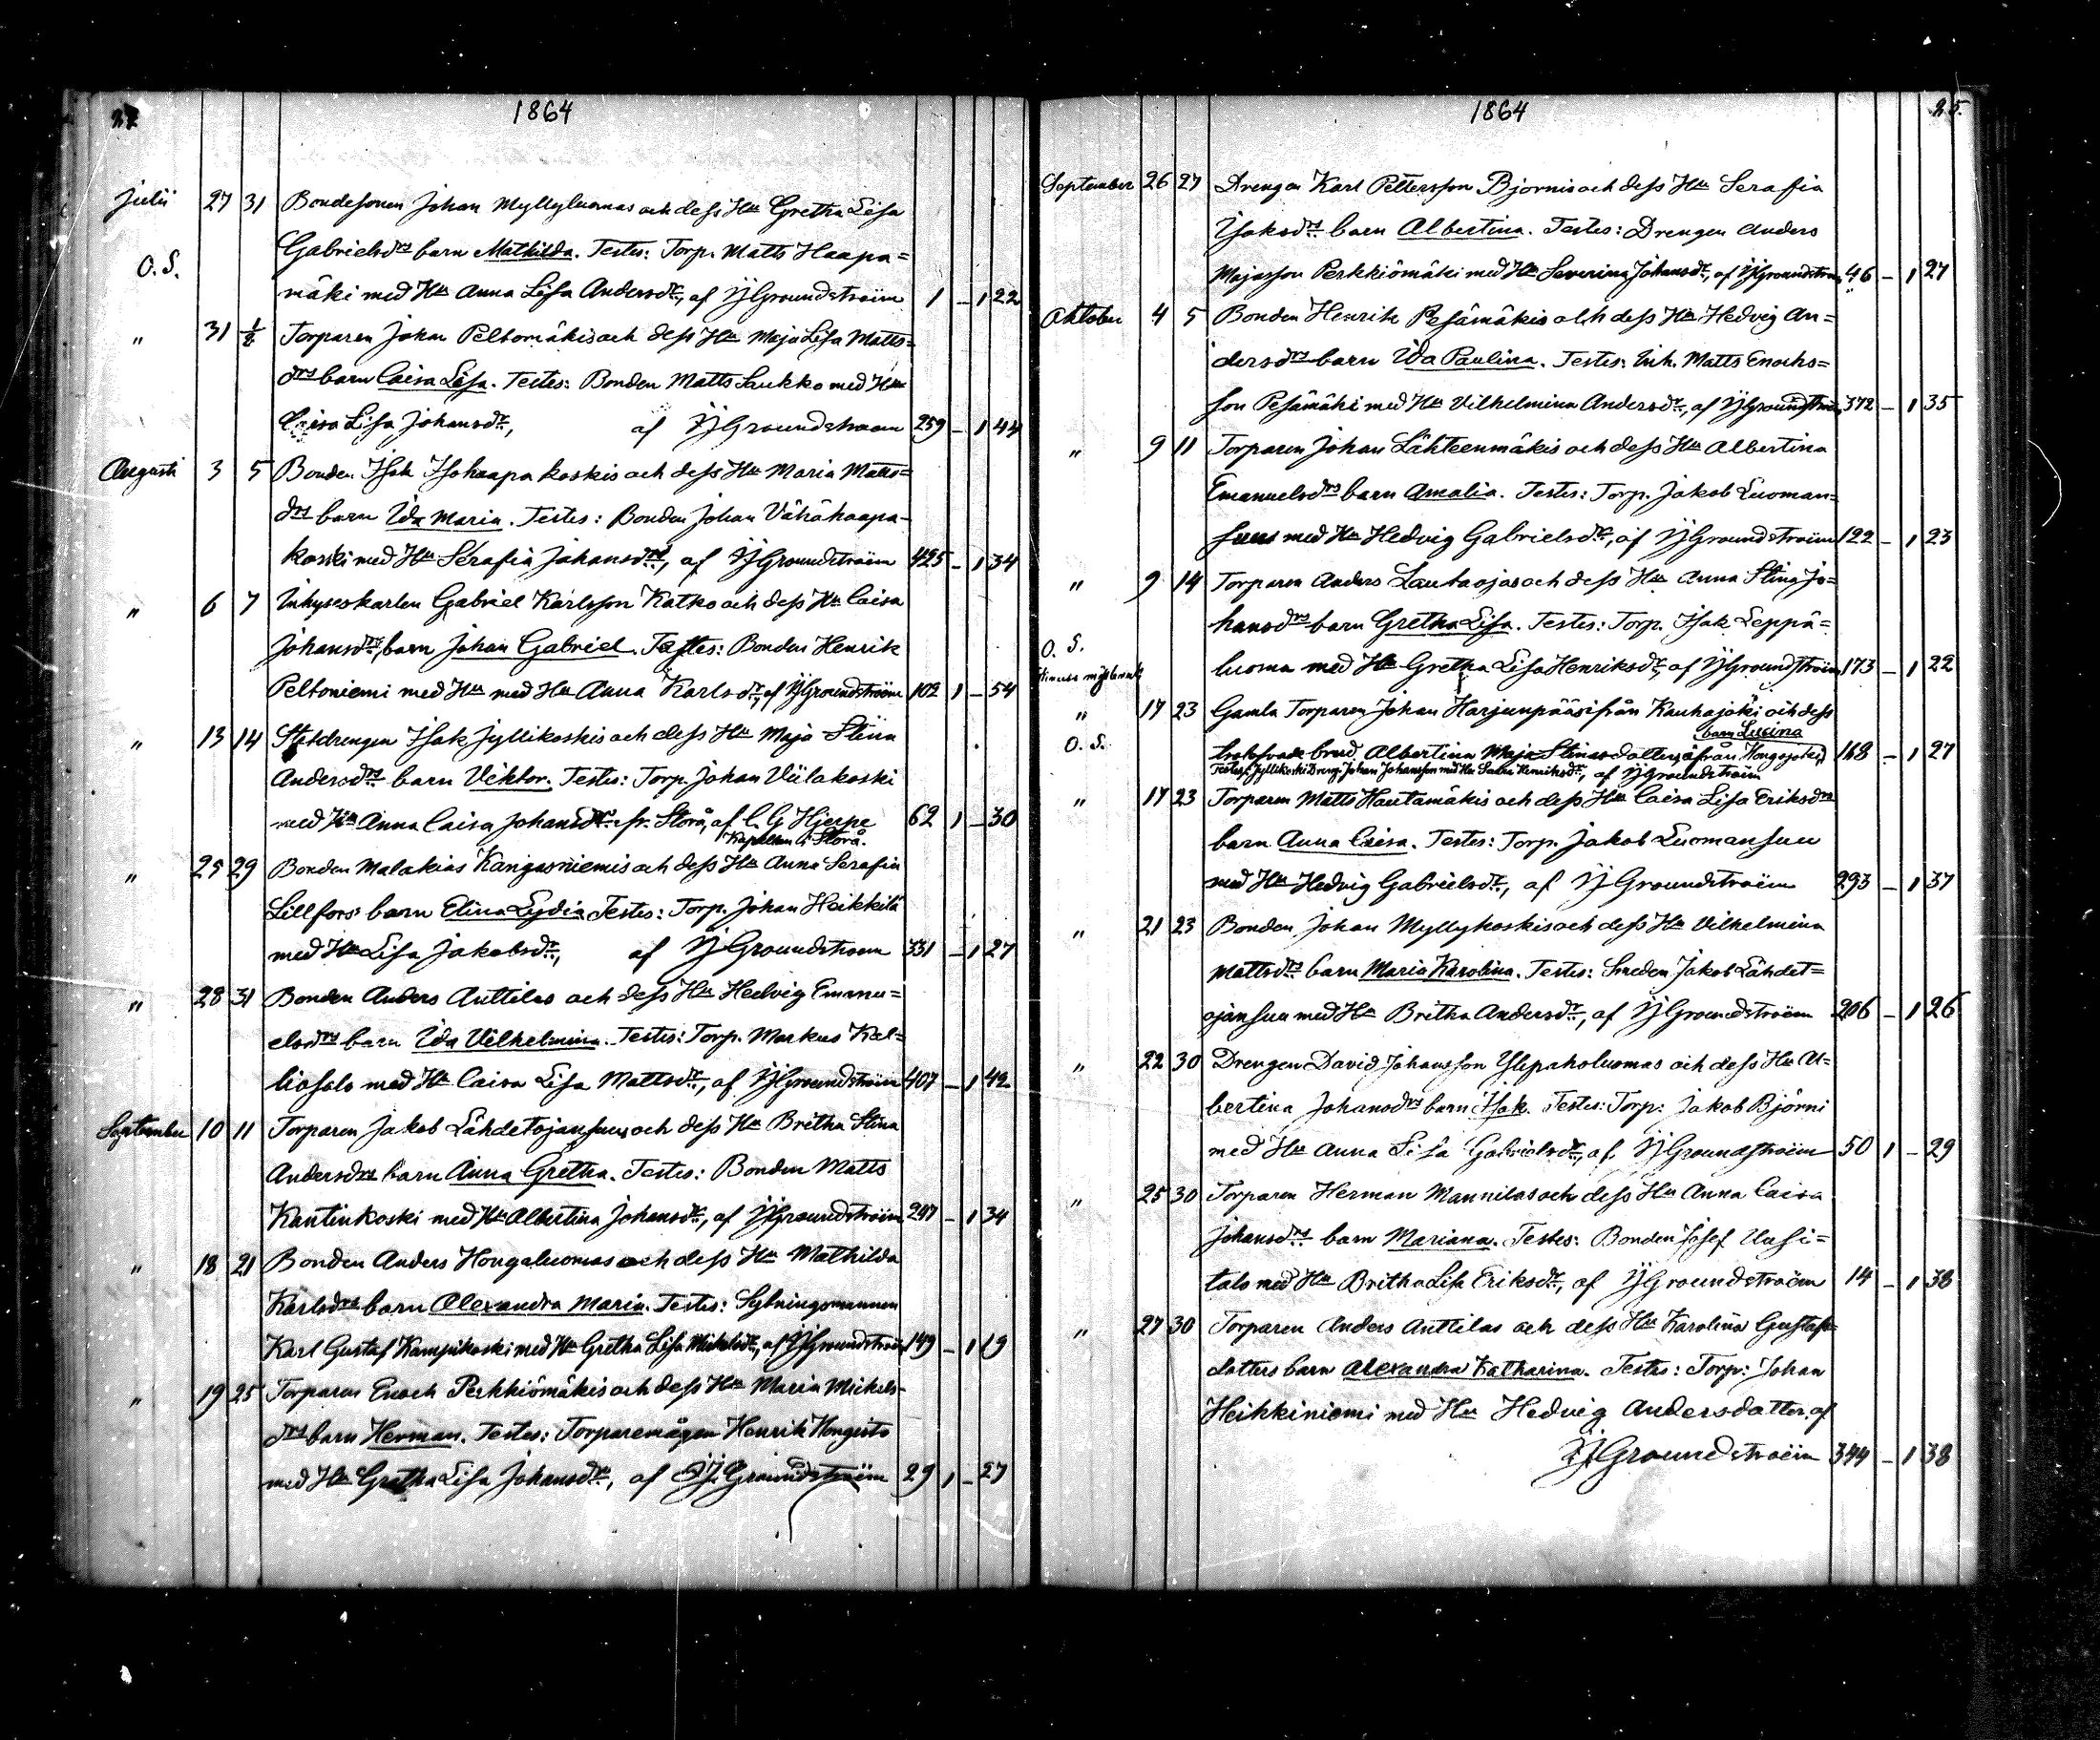 1864
Julii 27 31 Bondesonen Johan Myllyluomas och dess Hu Gretha Lisa
O.S. Gabrielsdrs barn Mathilda. Testes: Torp. Matts Haapa=
mäki med Hu Anna Lisa Andersdr, af JJGroundstroëm 1 – 1 22
" 31 1/8 Torparen Johan Peltomäkis och dess Hu Maja Lisa Matts=
drs barn Caisa Lisa. Testes: Bonden Matts Luukko med Hu
Caisa Lisa Johansdr, af JJGroundstroem 259 – 1 44
Augusti 3 5 Bonden Isak Isohaapakoskis och dess Hu Maria Matts=
drs barn Ida Maria. Testes: Bonden Johan Vähähaapa-
koski med Hu Serafia Johansdr, af JJGroundstroëm 425 – 1 34
" 6 7 Inhyseskarlen Gabriel Karlsson Katko och dess Hu Caisa
Johansdrs barn Johan Gabriel. Testes: Bonden Henrik
Peltoniemi med Hu med Hu Anna Karlsdr, af JJGroundstroëm 102 1 – 54
" 13 14 Statdrengen Isak Jyllikoskis och dess Hu Maja Stina
Andersdrs barn Viktor. Testes: Torp. Johan Viilakoski
med Hu Anna Caisa Johansdr fr. Storå, af C. G Hjerpe 62 1 – 30
Kapellan i Storå.
" 25 29 Bonden Malakias Kangasniemis och dess Hu Anna Serafia
Lillfors' barn Elina Lydia Testes: Torp. Johan Heikkilä
med Hu Lisa Jakobsdr, af JJGroundstroem 331 – 1 27
" 28 31 Bonden Anders Anttilas och dess Hu Hedvig Emanu=
elsdrs barn Ida Vilhelmina. Testes: Torp. Markus Kal=
liosalo med Hu Caisa Lisa Mattsdr, af JJGroundstroëm 407 – 1 42
September 10 11 Torparen Jakob Lähdetojansuus och dess Hu Britha Stina
Andersdrs barn Anna Gretha. Testes: Bonden Matts
Kantinkoski med Hu Albertina Johansdr, af JJGroundstroëm 247 – 1 34
" 18 21 Bonden Anders Hongaluomas och dess Hu Mathilda
Karlsdrs barn Alexandra Maria. Testes: Sytningsmannen
Karl Gustaf Kampikoski med Hu Gretha Lisa Mickelsdr, af JJGroundstroëm 149 – 1 19
" 19 25 Torparen Enoch Perkkiömäkis och dess Hu Maria Mickels-
drs barn Herman. Testes: Torparemågen Henrik Hongisto
med Hu Gretha Lisa Johansdr, af JJ Groundstroëm 29 1 – 27
1864 25.
September 26 27 Drengen Karl Pettersson Björnis och dess Hu Serafia
Isaksdrs barn Albertina. Testes: Drengen Anders
Majasson Perkkiömäki med Hu Severina Johansdr, af JJGroundstroëm 46 – 1 27
Oktober 4 5 Bonden Henrik Pesämäkis och dess Hu Hedvig An=
dersdrs barn Ida Paulina. Testes: Inh. Matts Enochs=
son Pesämäki med Hu Vilhelmina Andersdr, af JJGroundstroëm 372 – 1 35
" 9 11 Torparen Johan Lähteenmäkis och dess Hu Albertina
Emanuelsdrs barn Amalia. Testes: Torp. Jakob Luoman=
suus med Hu Hedvig Gabrielsdr, af JJGroundstroëm 122 – 1 23
" 9 14 Torparen Anders Lautaojas och dess Hu Anna Stina Jo=
hansdrs barn Gretha Lisa. Testes: Torp. Isak Leppä=
O. S. luoma med Hu Gretha Lisa Henriksdr, af JJGroundstroëm 173 – 1 22
" 17 23 Gamla Torparen Johan Harjunpääs från Kauhajoki och dess
barn Lusina
O. S. brud Albertina Maja Stinas dotters från Hongojoki 168 – 1 27
Testes: Jyllikoski Dreng. Johan Johansson med Hu Henriksdr, af JJGroundstroëm
" 17 23 Torparen Matts Hautamäkis och dess Hu Caisa Lisa Eriksdrs
barn Anna Caisa. Testes: Torp. Jakob Luomansuu
med Hu Hedvig Gabrielsdr, af JJGroundstroëm 293 – 1 37
" 21 23 Bonden Johan Myllykoskis och dess Hu Vilhelmina
Mattsdrs barn Maria Karolina. Testes: Smeden Jakob Lähdet=
ojansuu med Hu Britha Andersdr, af JJGroundstroëm 206 – 1 26
" 22 30 Drengen David Johansson Ylipaholuomas och dess Hu Al=
bertina Johansdrs barn Isak. Testes: Torp: Jakob Björni
med Hu Anna Lisa Gabrielsdr, af JJGroundstroëm 50 1 – 29
" 25 30 Torparen Herman Mannilas och dess Hu Anna Caisa
Johansdrs barn Mariana. Testes: Bonden Josef Uusi=
talo med Hu Britha Lisa Eriksdr, af JJGroundstroëm 14 – 1 38
" 27 30 Torparen Anders Anttilas och dess Hu Karolina Gustafs=
dotters barn Alexandra Katharina. Testes: Torp: Johan
Heikkiniemi med Hu Hedvig Andersdotter, af
JJGroundstroëm 344 – 1 38